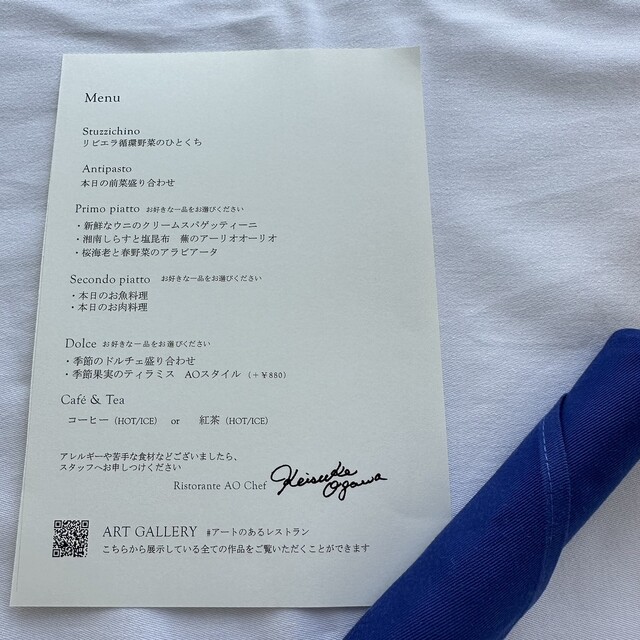 Menu
Stuzzichino
リビエラ循環野菜のひとくち
Antipasto
本日の前菜盛り合わせ
Primo piatto お好きな一品をお選びください
・新鮮なウニのクリームスパゲッティーニ
・湘南しらすと塩昆布 蕪のアーリオオーリオ
・桜海老と春野菜のアラビアータ
Secondo piatto お好きな一品をお選びください
・本日のお魚料理
・本日のお肉料理
Dolce お好きな一品をお選びください
・季節のドルチェ盛り合わせ
・季節果実のティラミス AOスタイル (+¥880)
Café & Tea
コーヒー (HOT/ICE) or 紅茶 (HOT/ICE)
アレルギーや苦手な食材などございましたら、
スタッフへお申しつけください
Ristorante AO Chef Keisuke Ogawa
ART GALLERY #アートのあるレストラン
こちらから展示している全ての作品をご覧いただくことができます